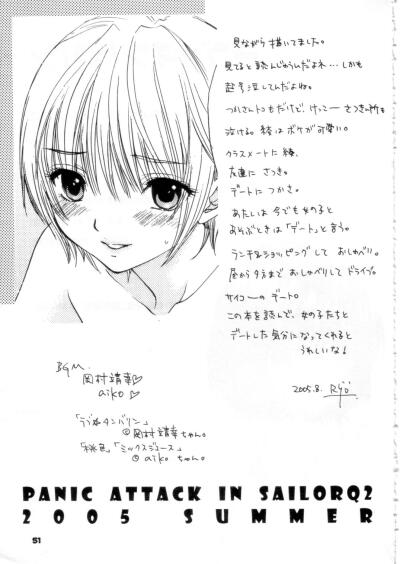 見ながら描いてました。
見てると読んじゃうんだよね…しかも
超号泣してんだよね。
つかさんトコもだけど、けっこーさつきの所も
泣ける。綾はボケが可愛い。
クラスメートに綾、
友達にさつき。
デートにつかさ。
あたしは今でも女の子と
あそぶときは「デート」と言う。
ランチ&ショッピングして おしゃべり。
昼から夕方まで おしゃべりして ドライブ。
サイコーのデート。
この本を読んで、女の子たちと
デートした気分になってくれると
うれしいな!
2005.8. Ryō
BGM.
岡村靖幸♡
aiko♡
「ラブタンバリン」
©岡村靖幸ちゃん。
「桃色」「ミックスジュース」
©aikoちゃん。
PANIC ATTACK IN SAILORQ2
2005 SUMMER
51